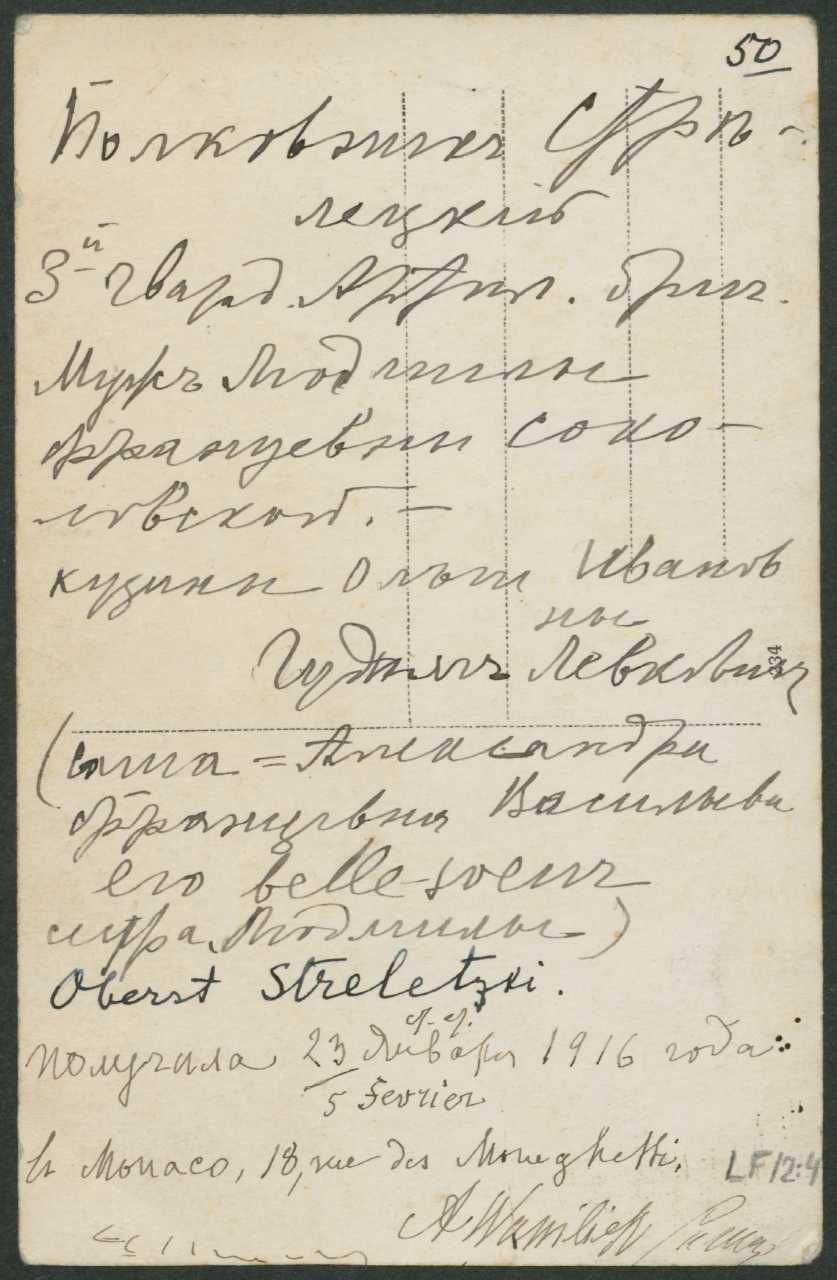 50
Полковникъ Стрѣ-
лецкій
3й Гвард. Артил. бриг.
Мужъ Людмилы
Францевны Соко-
ловской. —
кузины Ольги Иванов
ны
Гуджалъ Левковичъ
(Саша = Александра
Францевна Васильева
его belle-soeur
сестра Людмилы)
Oberst Streletzki.
ст. ст.
получила 23 Января 1916 года
5 Fevrier
в Monaco, 18, rue des Moneghetti.
LF12:4
A Wassilieff